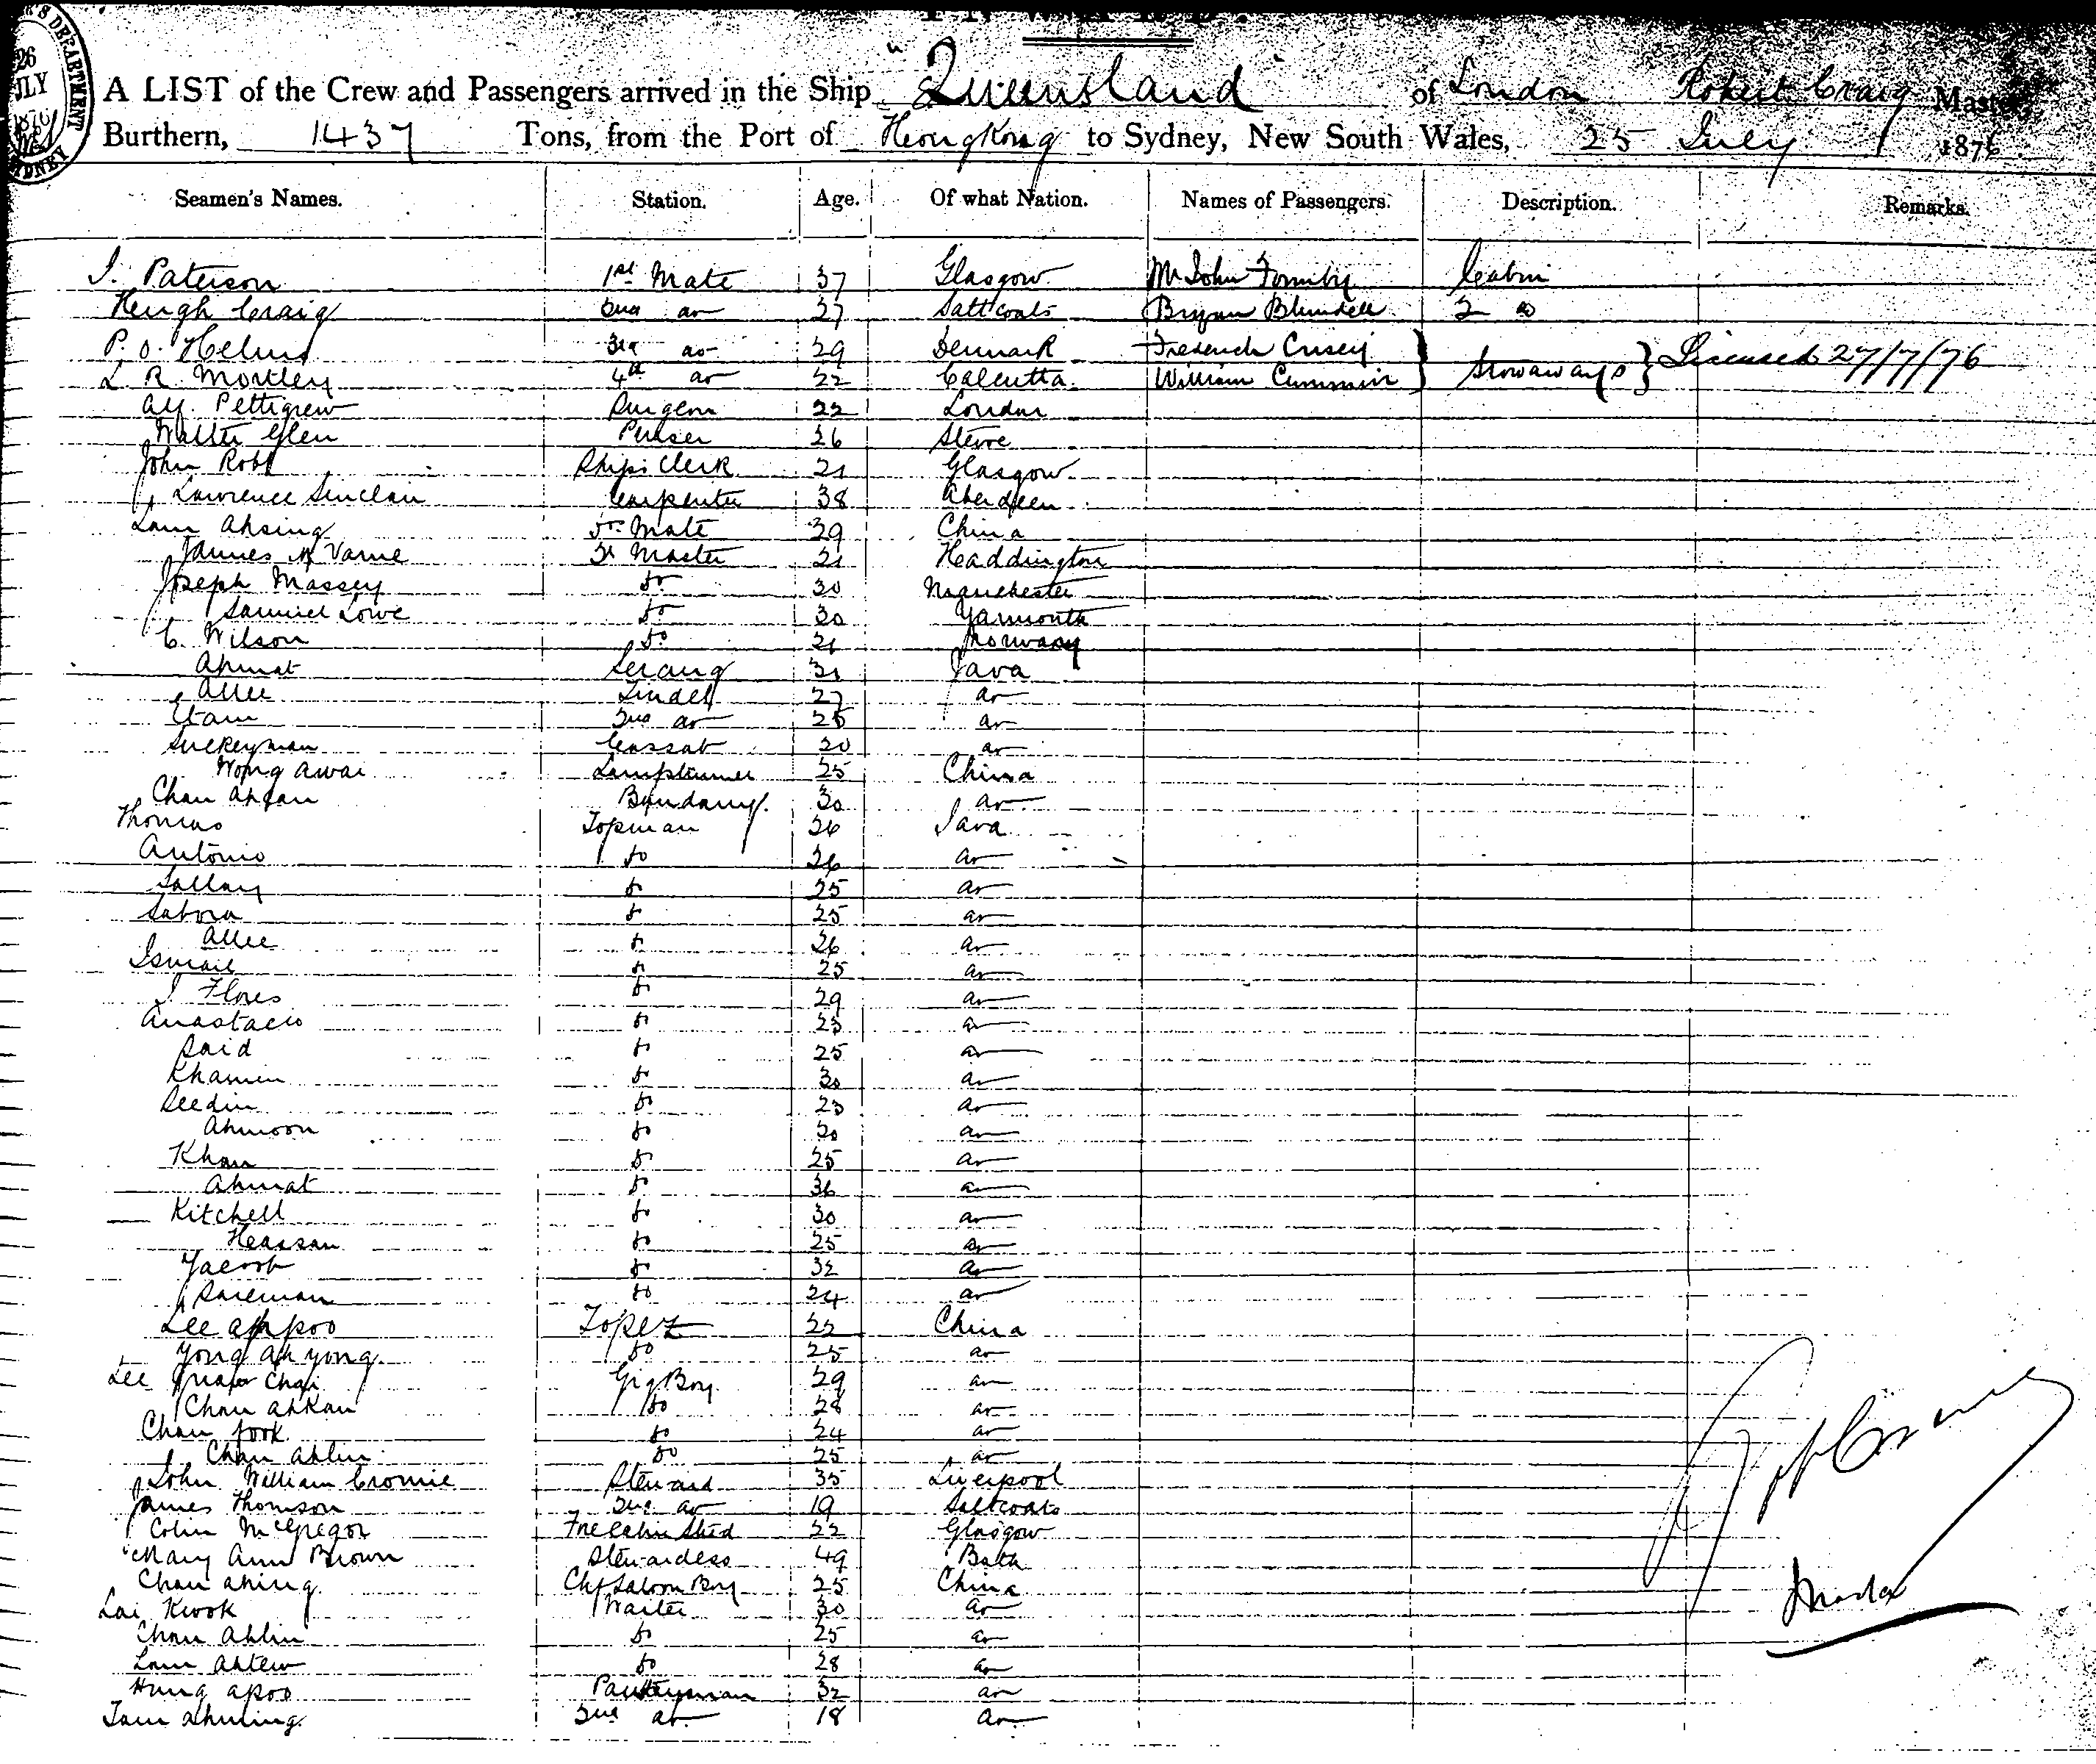 INWARD.
26 JLY 1876
'S DEPARTMENT
SYDNEY
A LIST of the Crew and Passengers arrived in the Ship "Queensland" of London Robert Craig Master,
Burthern, 1437 Tons, from the Port of HongKong to Sydney, New South Wales, 25 July 1876
Seamen's Names. Station. Age. Of what Nation. Names of Passengers. Description. Remarks.
J. Paterson 1st Mate 37 Glasgow Mr John Formby Cabin
Hugh Craig 2nd do 27 Saltcoats Bryan Blundell 2 do
P. O. Helms 3rd do 29 Denmark Frederick Cusey
L R. Mortley 4th do 22 Calcutta William Cummin } Stowaways } Licensed 27/7/76
Alf. Pettigrew Surgeon 22 London
Walter Glen Purser 26
John Robb Ships Clerk 21 Glasgow
Lawrence Sinclair Carpenter 38 Aberdeen
Lam Ahsing Do Mate 39 China
James Varne Qr Master 21 Haddington
Joseph Massey do 30 Manchester
Samuel Lowe do 30 Yarmouth
C. Wilson do 21 Norway
Ahmat Serang 31 Java
Allee Tindel 27 do
Etam 2nd do 25 do
Suckeyman Cassab 20 do
Wong Awai Lamptrimmer 25 China
Chan Ahfan 30 do
Thomas Topman 26 Java
Antonio do 26 do
Sallay do 25 do
Sabora do 25 do
Allee do 26 do
Ismail do 25 do
J Flores do 29 do
Anastacio do 23 do
Said do 25 do
Khamen do 30 do
Seedin do 23 do
Ahmoon do 30 do
Khan do 25 do
Ahmat do 36 do
Kitchell do 30 do
Heassan do 25 do
Yacoob do 32 do
Sareman do 24 do
Lee Ahpoo Topez 22 China
Yong Ah Yong do 25 do
Lee Chai Gig Boy 29 do
Chan Ahkan do 28 do
Chan Fook do 24 do
Chan Ahlin do 25 do
John William Cromie Steward 35 Liverpool
James Thomson 2nd do 19 Saltcoats
Colin McGregor Fre Cabin Stwd 22 Glasgow
Mary Ann Brown Stewardess 49 Bath
Chan Ahing Chf Saloon Boy 25 China
Lai Kwok Waiter 30 do
Chan Ahlin do 25 do
Lam Ahtew do 28 do
Hung Apoo Pantryman 32 do
Tam Ahming 2nd do 18 do
Master